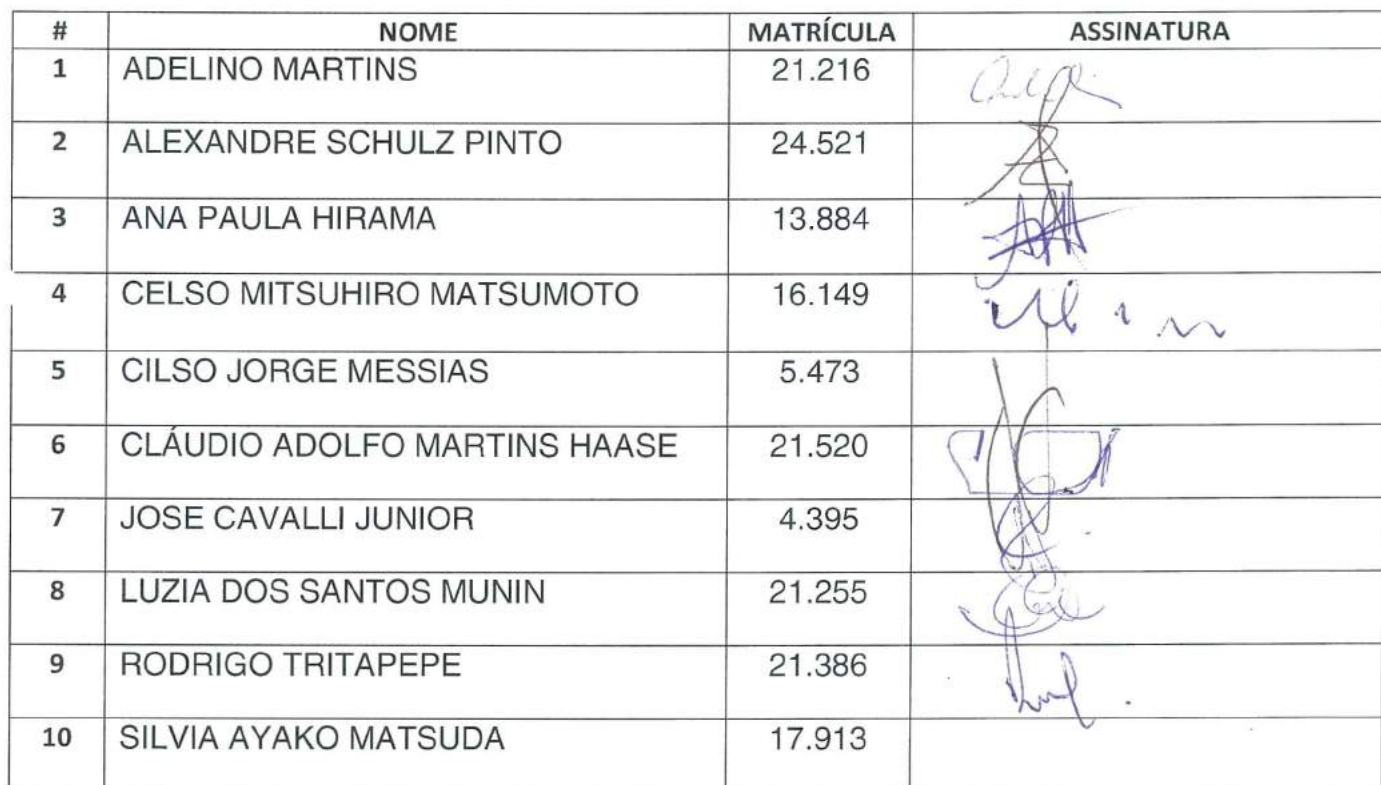 # NOME MATRÍCULA ASSINATURA
1 ADELINO MARTINS 21.216
2 ALEXANDRE SCHULZ PINTO 24.521
3 ANA PAULA HIRAMA 13.884
4 CELSO MITSUHIRO MATSUMOTO 16.149
5 CILSO JORGE MESSIAS 5.473
6 CLÁUDIO ADOLFO MARTINS HAASE 21.520
7 JOSE CAVALLI JUNIOR 4.395
8 LUZIA DOS SANTOS MUNIN 21.255
9 RODRIGO TRITAPEPE 21.386
10 SILVIA AYAKO MATSUDA 17.913